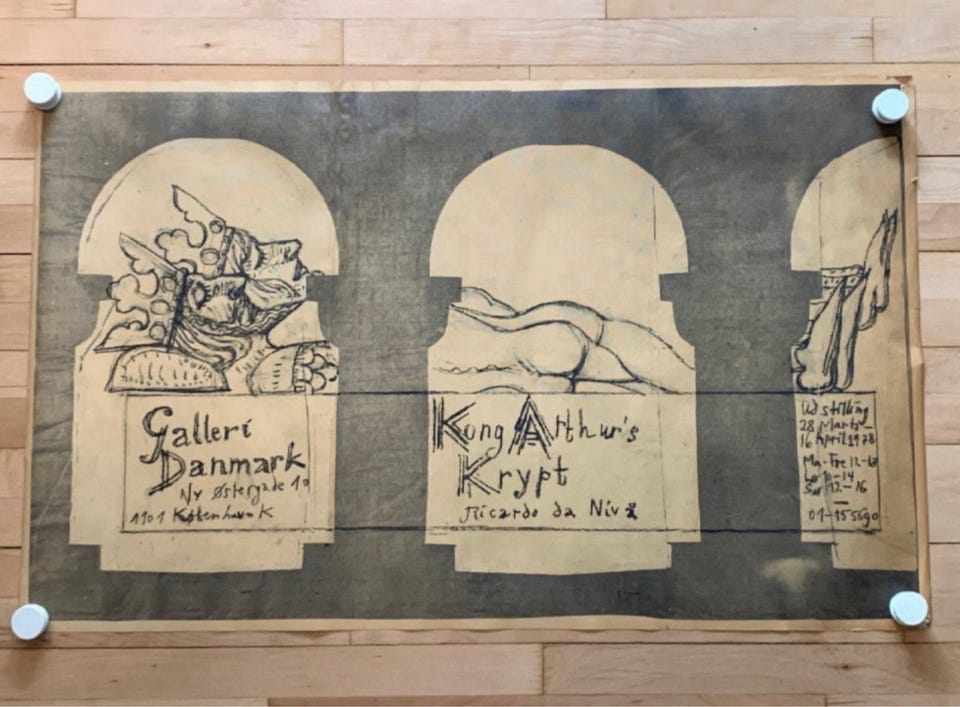 Galleri
Danmark
Ny Østergade 10
1101 København K
Kong Arthur's
Krypt
Ricardo da Niv
Udstilling
28 Marts-
16 April 1978
Ma-Fre 12-
Lø 10-14
Sø 12-16
01-155690